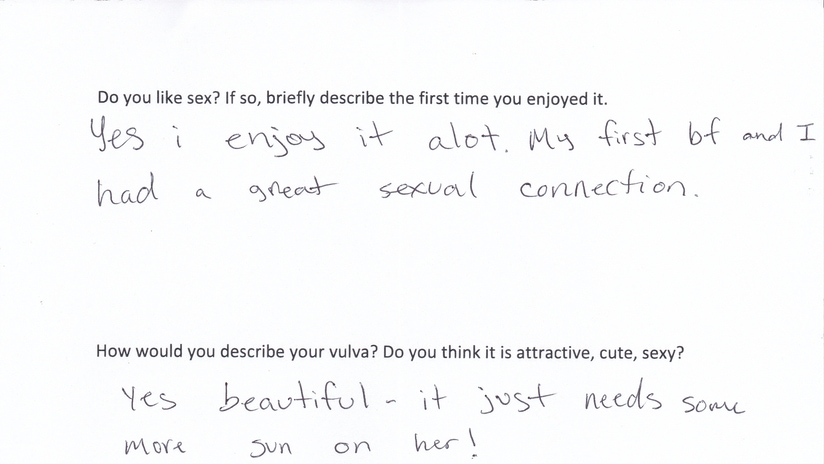 Do you like sex? If so, briefly describe the first time you enjoyed it.
Yes i enjoy it alot. My first bf and I
had a great sexual connection.
How would you describe your vulva? Do you think it is attractive, cute, sexy?
Yes beautiful - it just needs some
more sun on her!